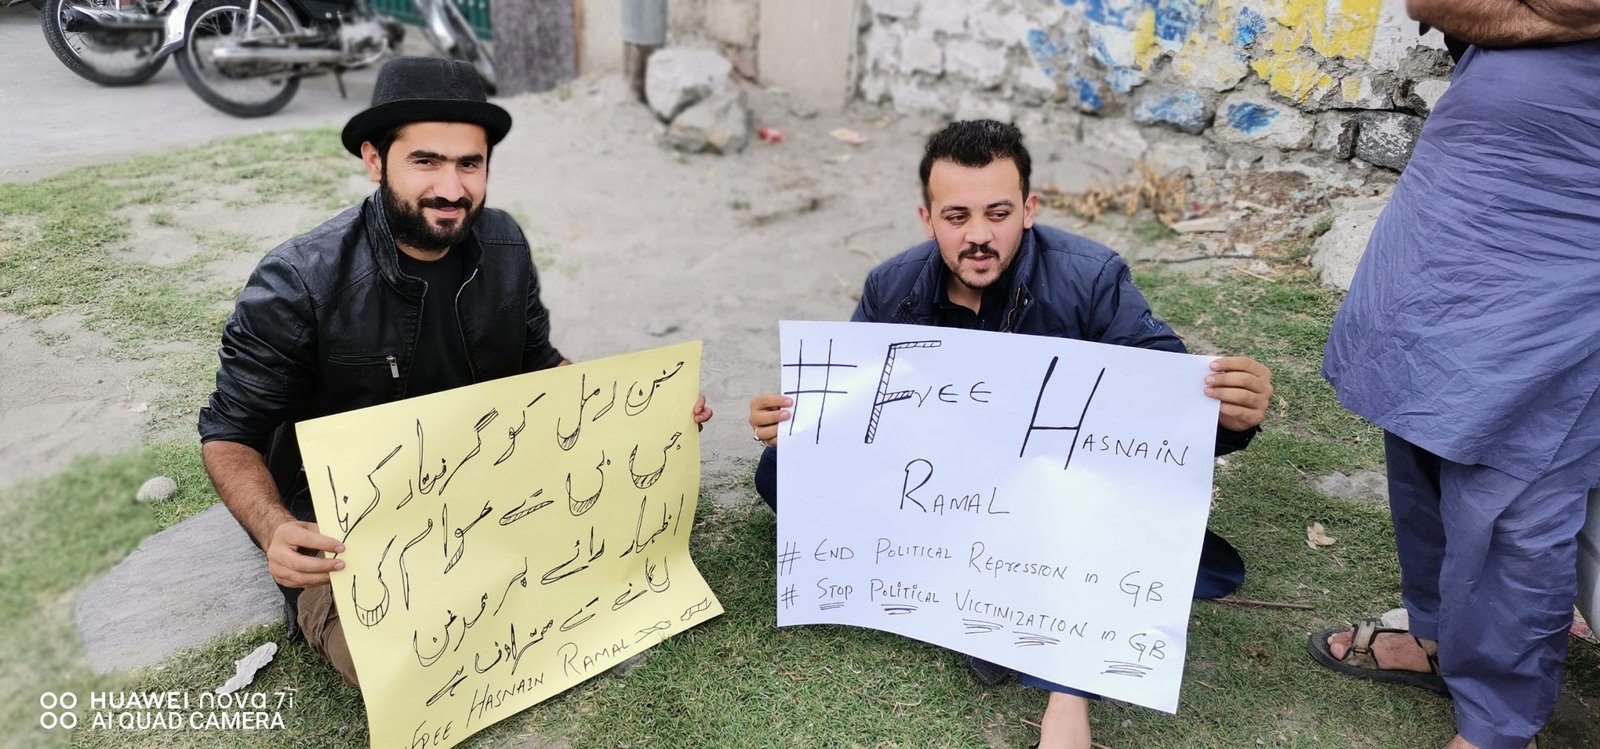 حسنین رمل کو گرفتار کرنا
جی بی کے عوام کی
اظہار رائے پر قدغن
لگانے کے مترادف ہے
FREE HASNAIN RAMAL
#FREE HASNAIN
RAMAL
# END POLITICAL REPRESSION in GB
# STOP POLITICAL VICTINIZATION in GB
HUAWEI nova 7i
AI QUAD CAMERA